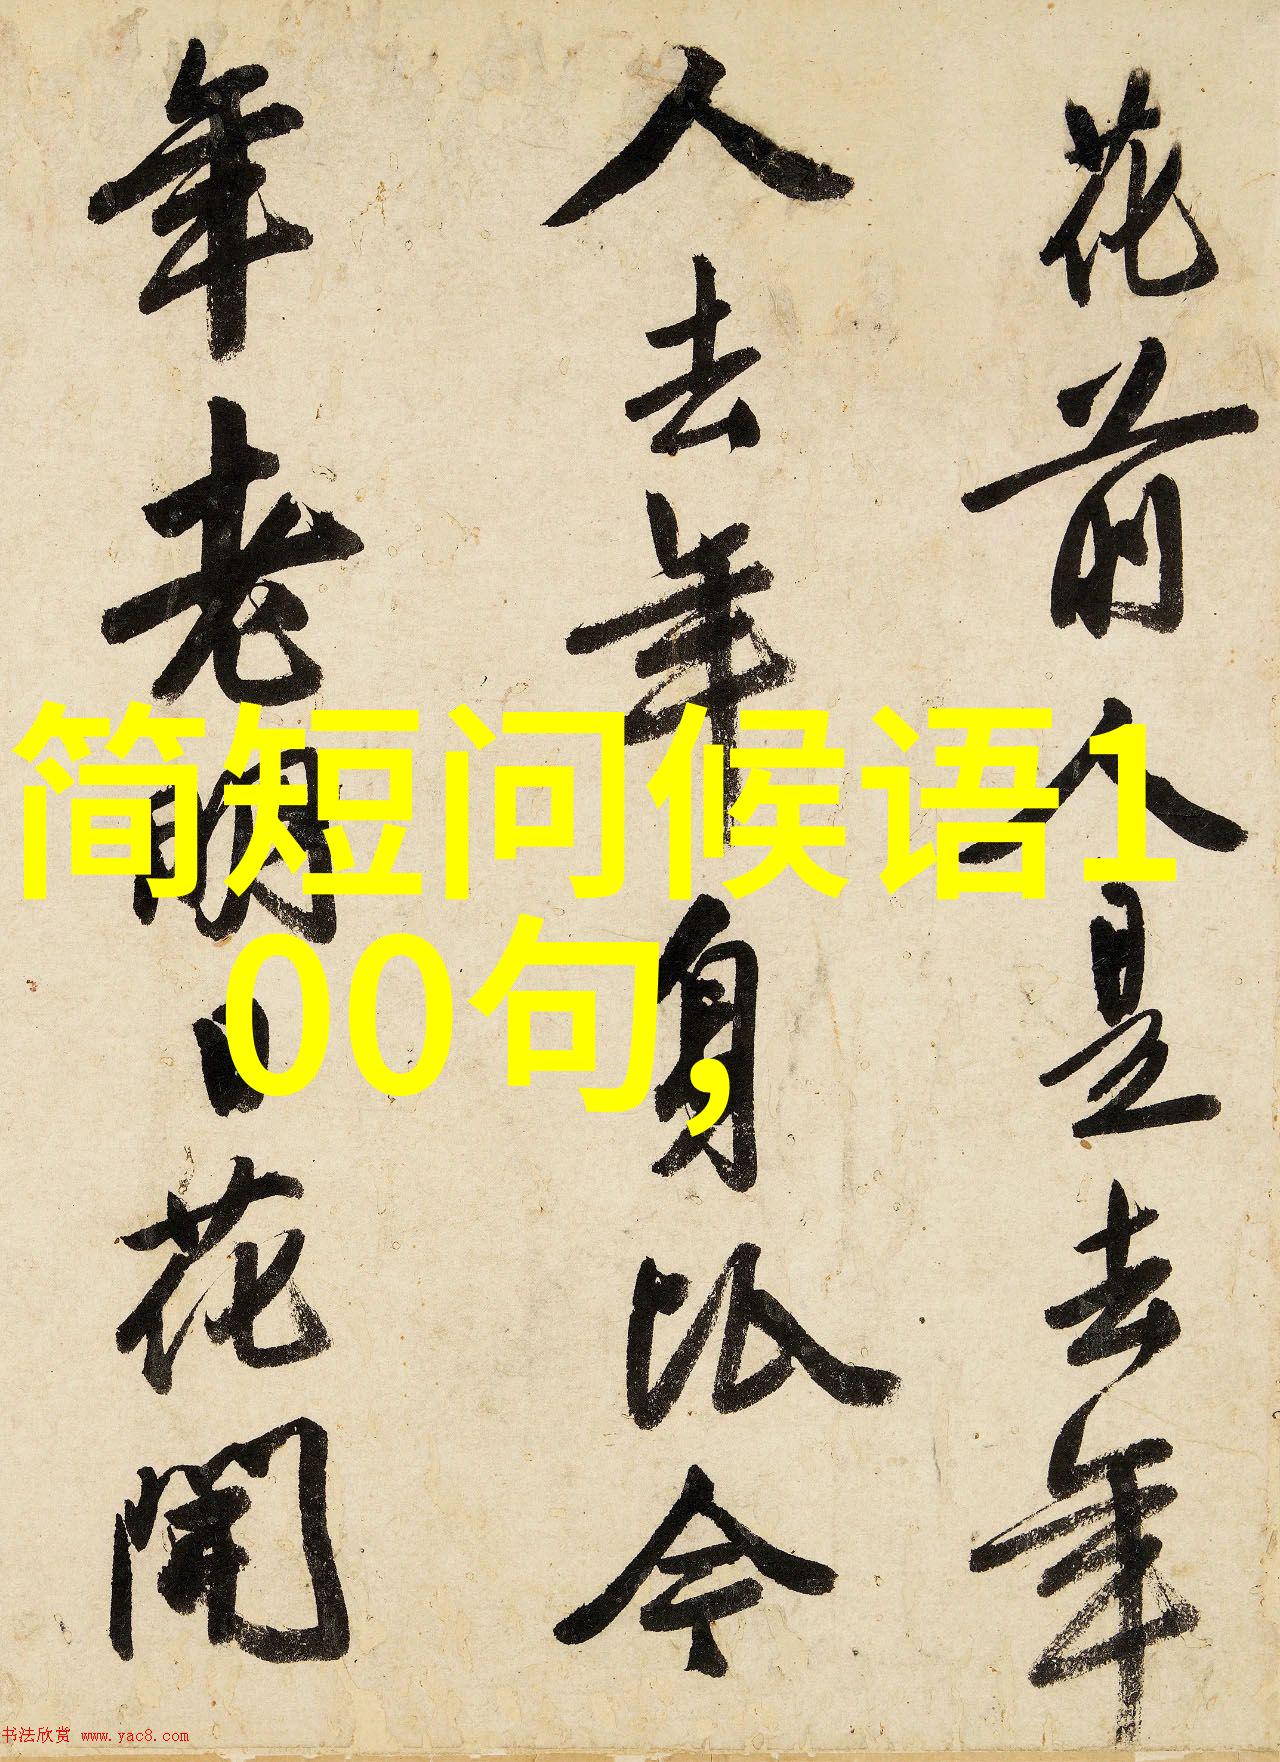 花前人是去年
人去年身比今
年老明日花開
简短问候语1
00句,
书法欣赏 www.yac8.com